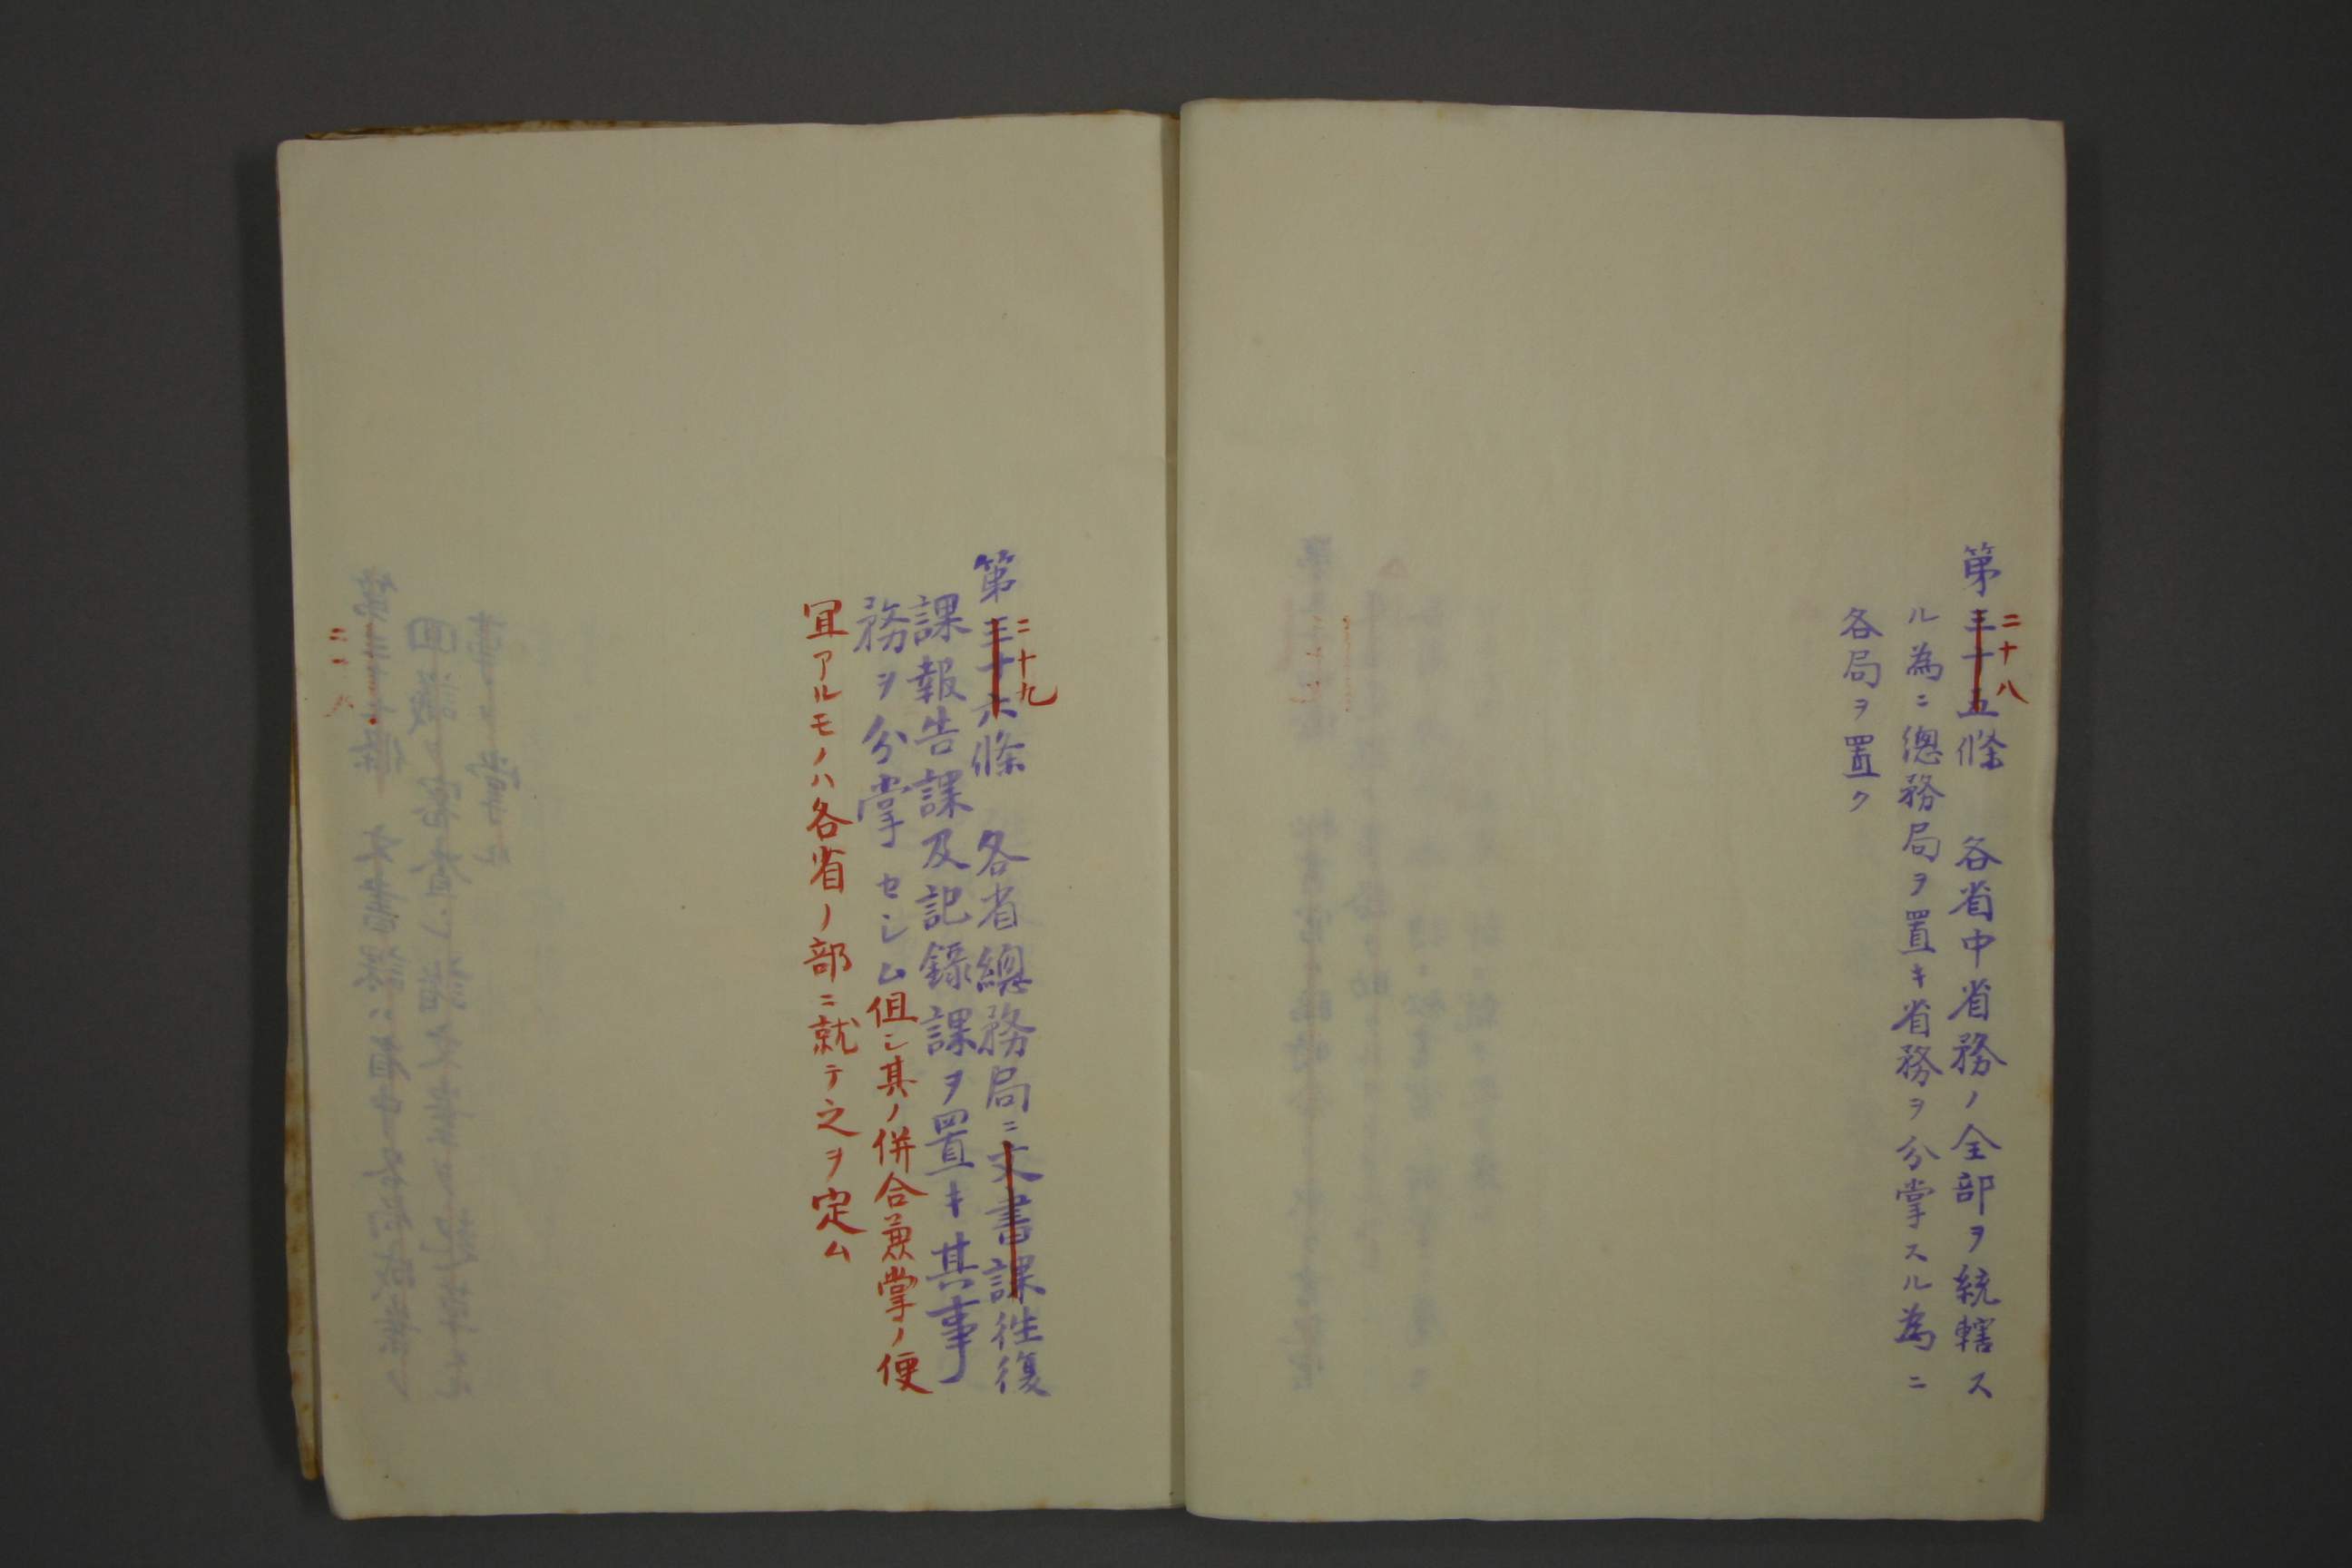 二十八
第三十五條 各省中省務ノ全部ヲ統轄ス
ル為ニ總務局ヲ置キ省務ヲ分掌スル為ニ
各局ヲ置ク
二十九
第三十六條 各省總務局ニ文書課往復
課報告課及記錄課ヲ置キ其事
務ヲ分掌セシム但シ其ノ併合兼掌ノ便
宜アルモノハ各省ノ部ニ就テ之ヲ定ム